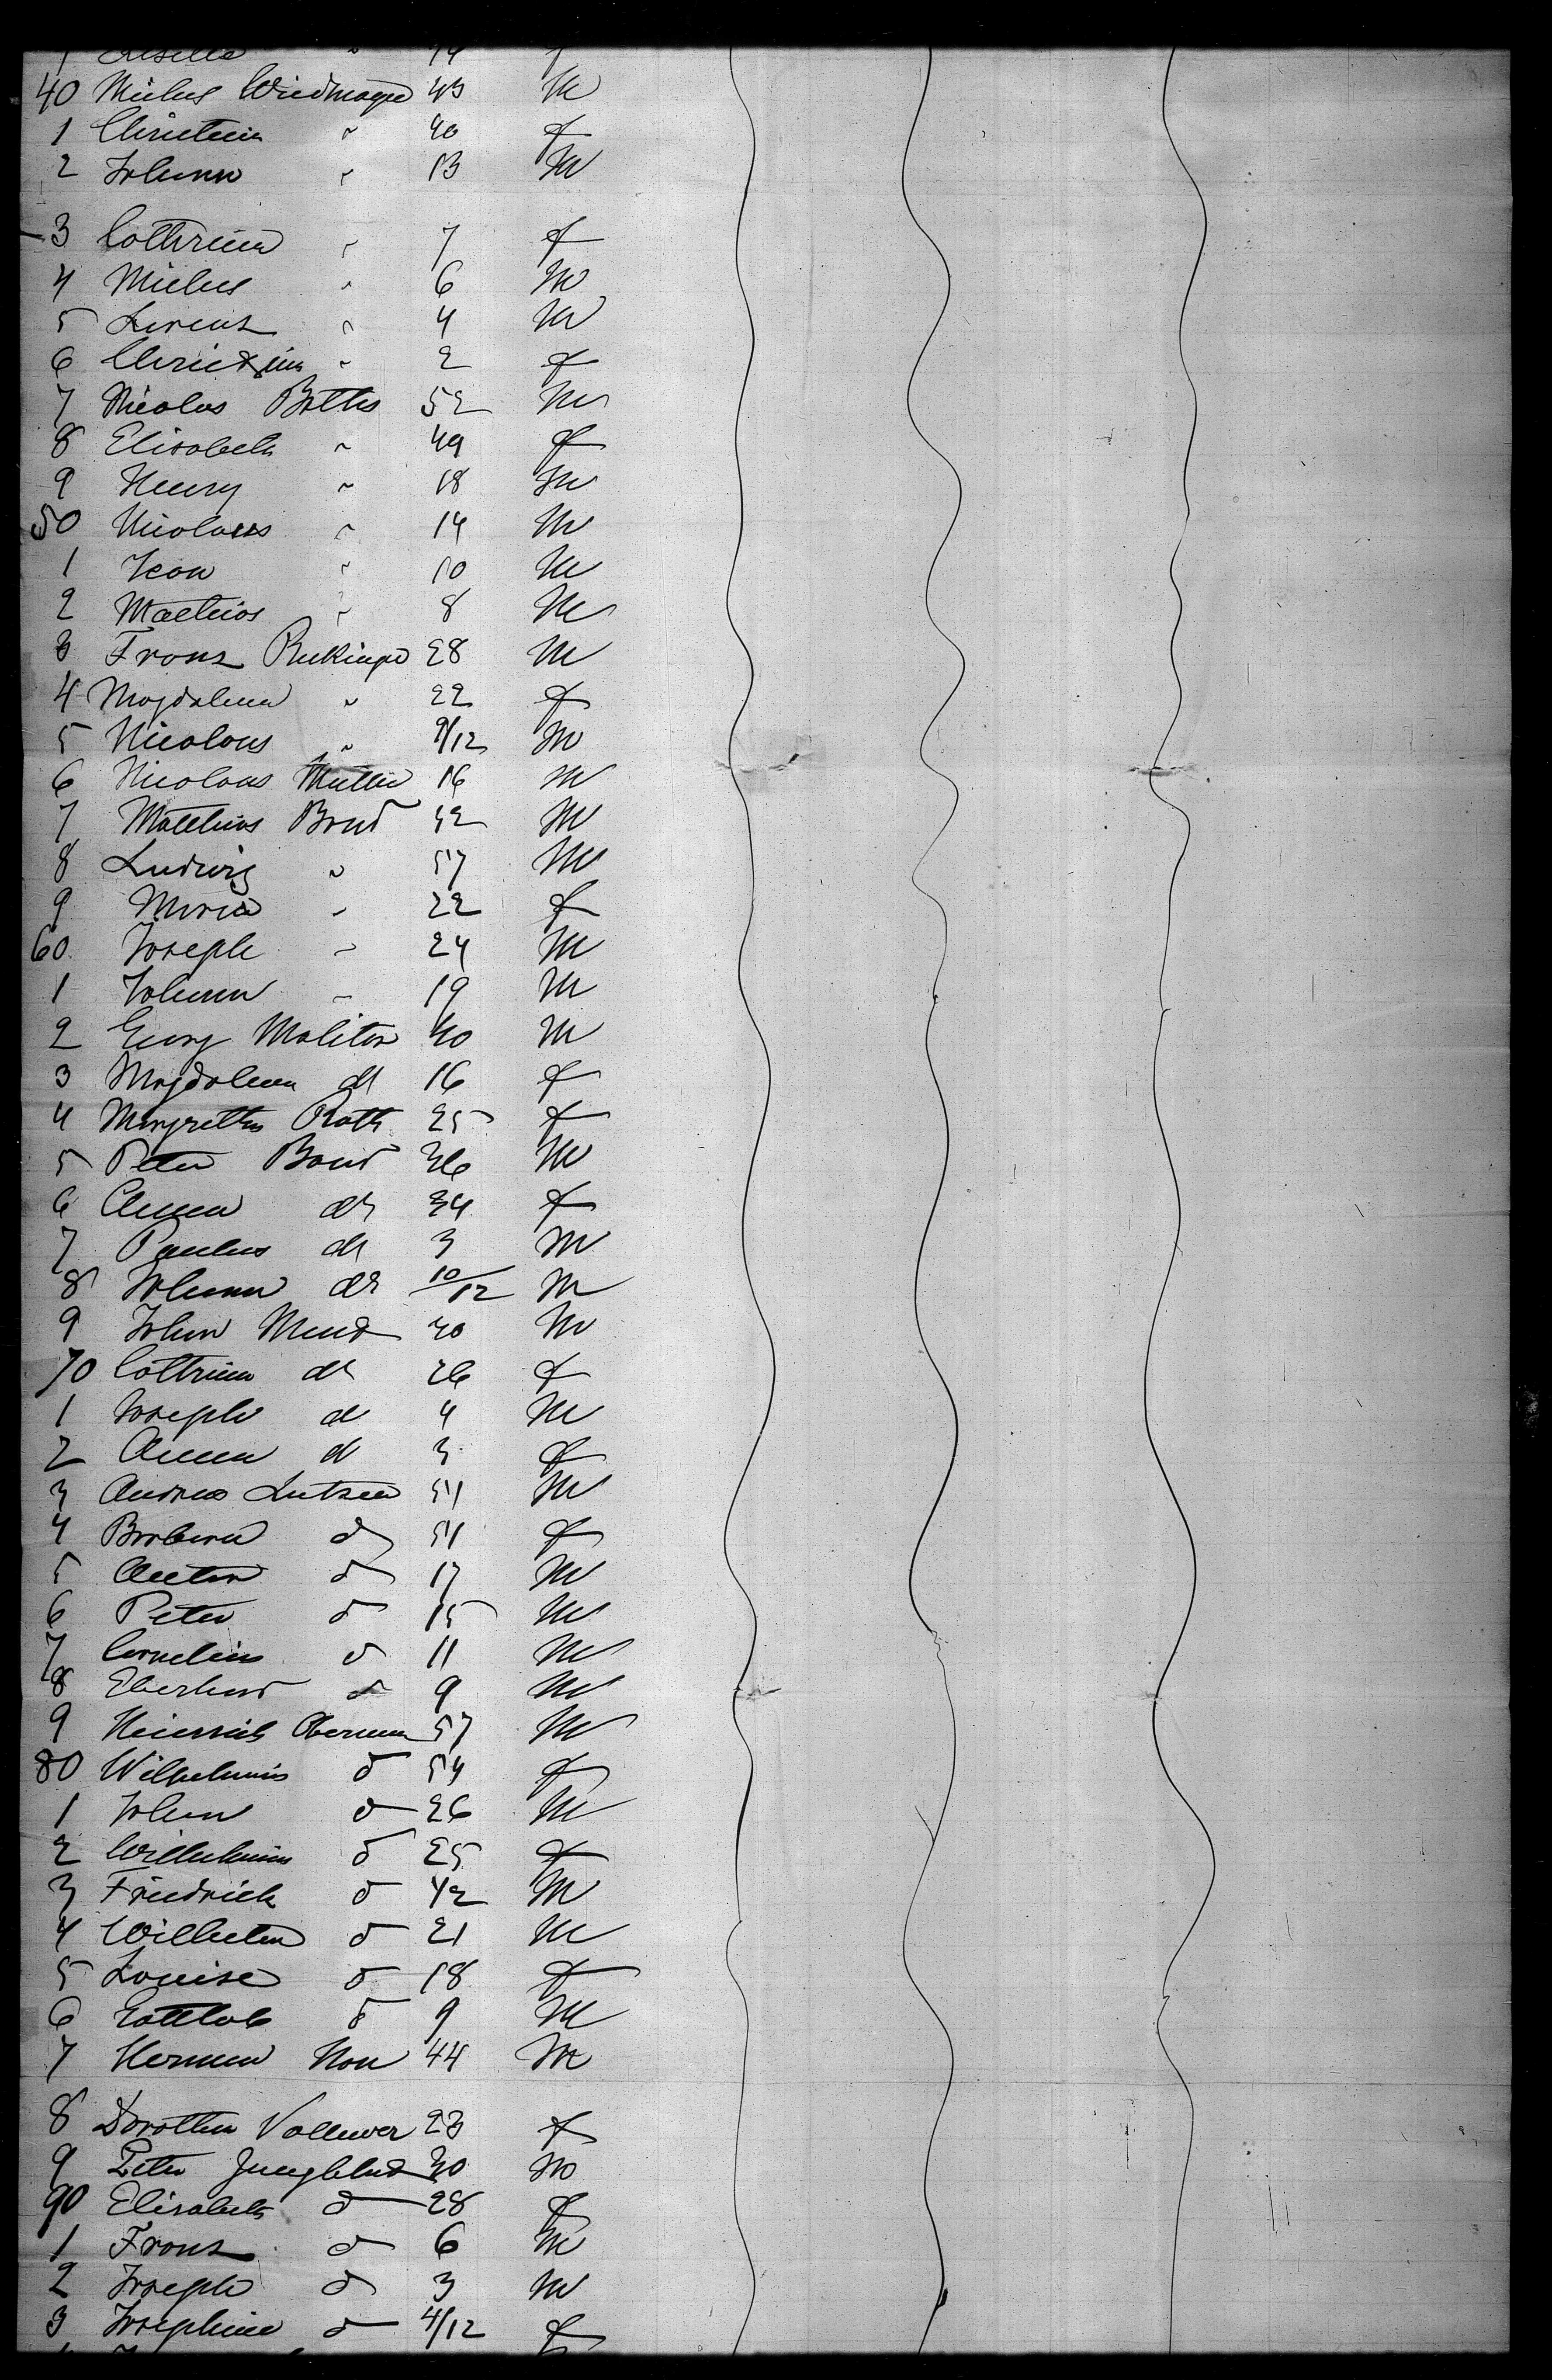 40 Michel 43 M
1 Christina " 40 f
2 Johann " 13 M
3 Cathrina " 7 f
4 Michel " 6 M
5 Lorenz " 4 M
6 Christina " 2 f
7 Nicolas Bottis 52 M
8 Elisabeth " 49 f
9 Henry " 18 M
50 Nicolaus " 14 M
1 Jean " 10 M
2 Mathias " 8 M
3 Franz 28 M
4 Magdalena " 22 f
5 Nicolaus " 9/12 M
6 Nicolaus Muller 16 M
7 Matthias M
8 Ludwig " 57 M
9 Maria " 22 f
60 Joseph " 24 M
1 Johann " 19 M
2 Georg Molitor 40 M
3 Magdalena do 16 f
4 Margretha Roth 25 f
5 Peter 36 M
6 Anna do 34 f
7 Paulus do 3 M
8 Johann do 10/12 M
9 John M
70 Cathrina do 26 f
1 Joseph do 4 M
2 Anna do 3 f
3 Andreas M
4 Barbara do f
5 Anton do 17 M
6 Peter do 15 M
7 Cornelius do 11 M
8 Eberhard do 9 M
9 Heinrich 57 M
80 Wilhelmina do 54 f
1 John do 26 M
2 Wilhelmina do 25 f
3 Friedrich do 42 M
4 Wilhelm do 21 M
5 Louise do 18 f
6 Gottlob do 9 M
7 Herman 44 M
8 Dorothea 23 f
9 Peter Jungblut 30 M
90 Elisabeth do 28 f
1 Franz do 6 M
2 Joseph do 3 M
3 Josephine do 4/12 f